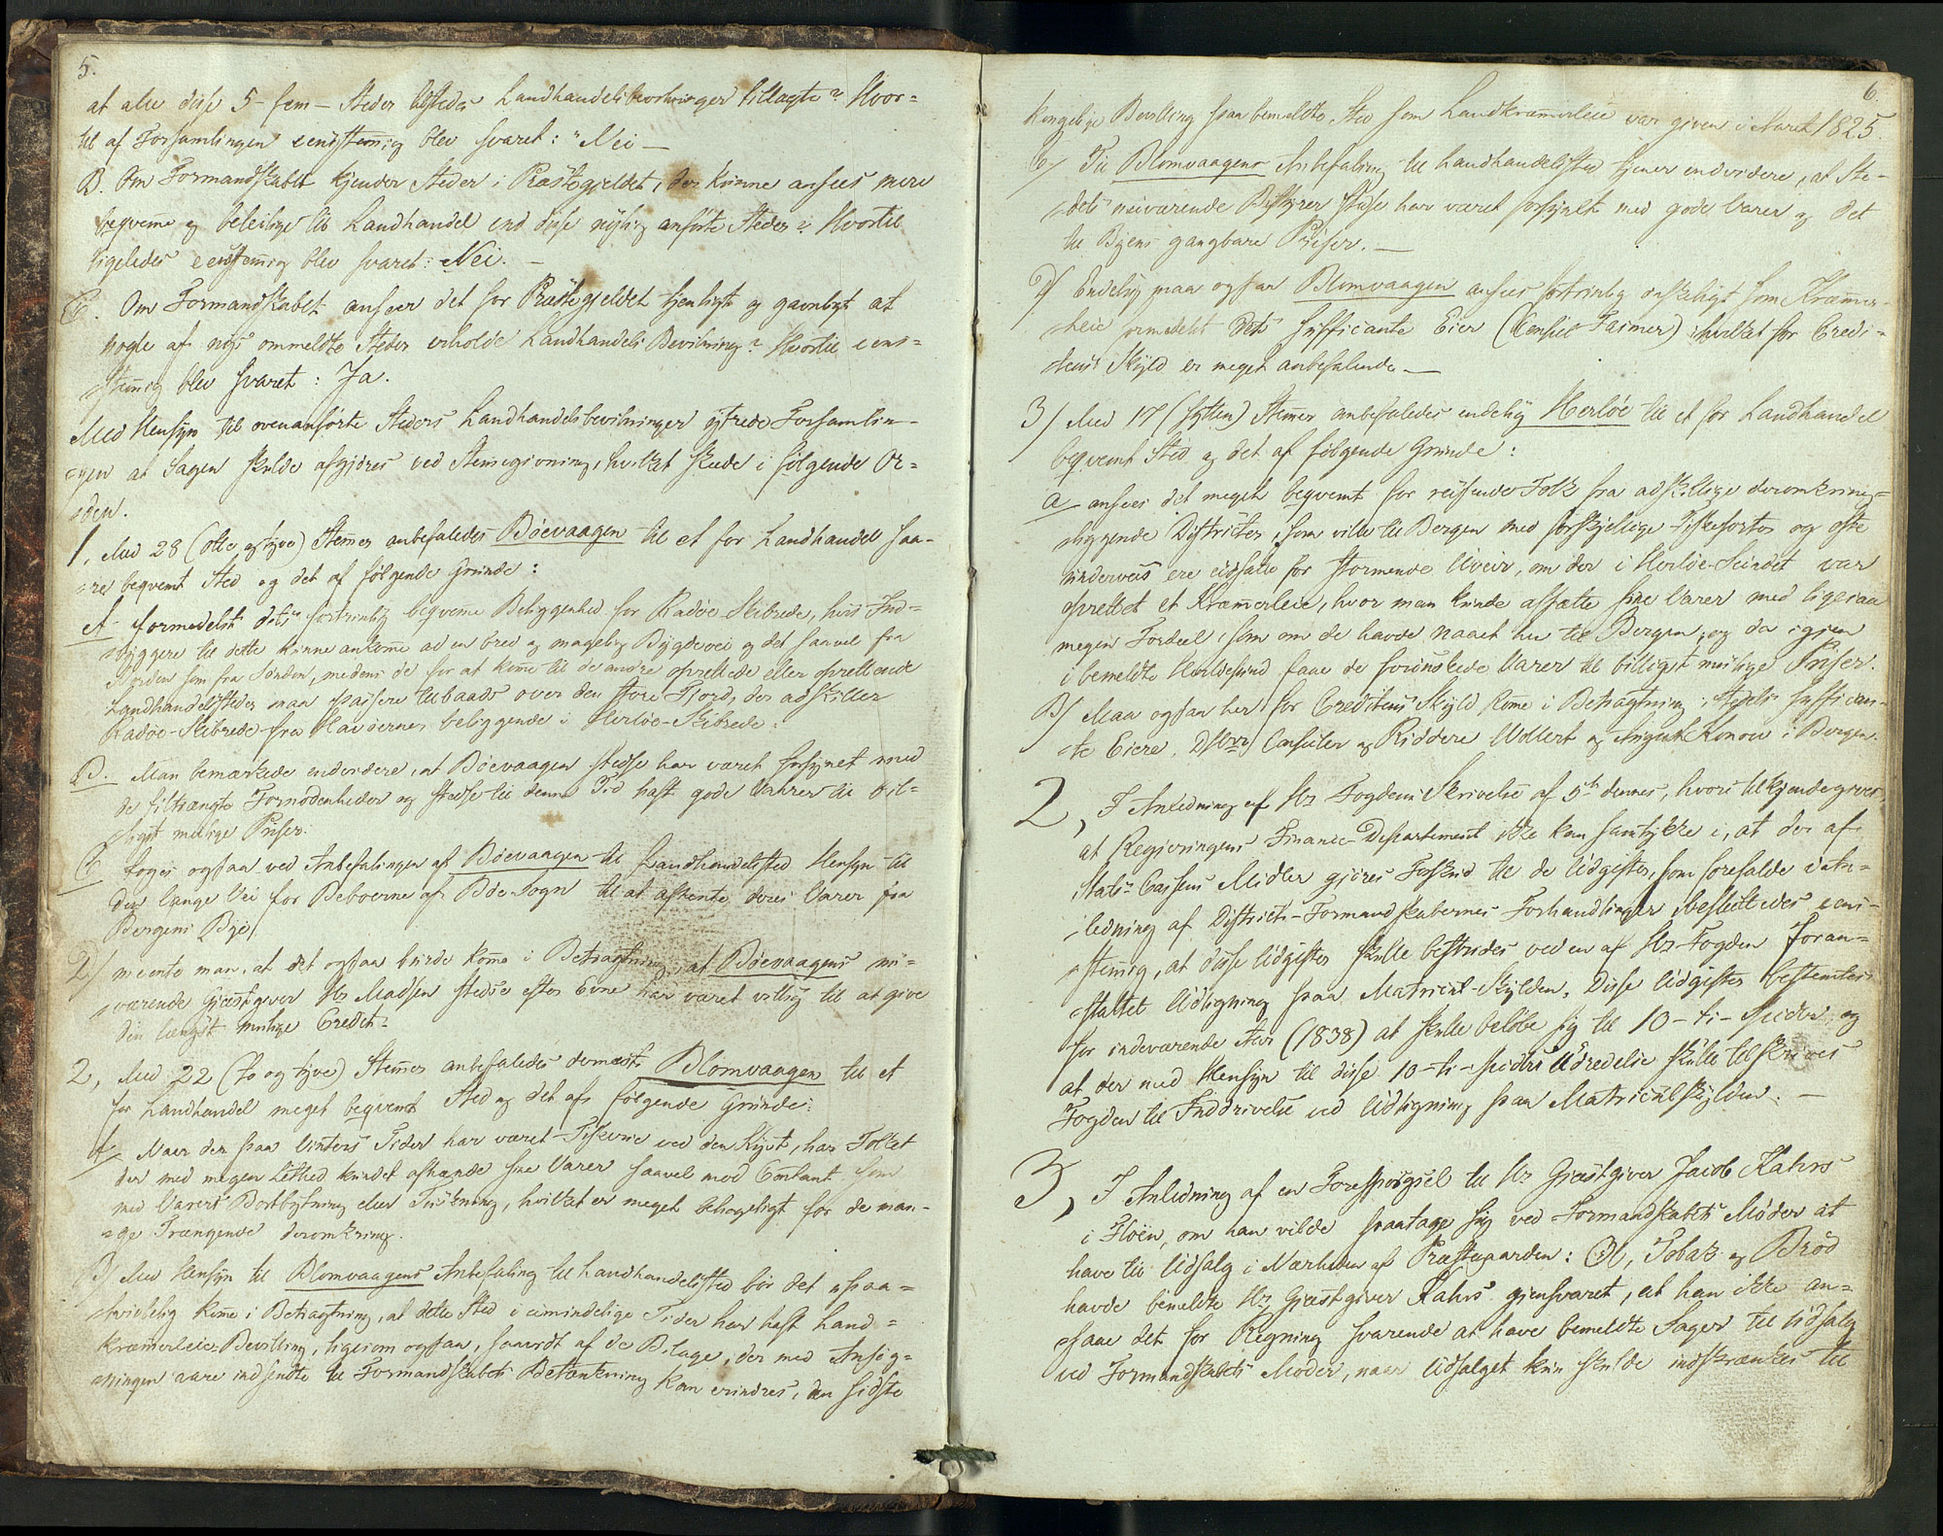 5.
at alle disse 5 - fem - Steder tilstedes Landhandelsbevilninger tillagte? Hvor=
til af Forsamlingen eenstemig blev svaret: "Nei —
B. Om Formandskabet kjender Steder i Præstegjeldet, der kunne ansees mere
beqveme og beleilige til Landhandel end disse nylig anførte Steder? Hvortil
ligeledes eenstemig blev svaret: Nei. —
C. Om Formandskabet anseer det for Præstegjeldet tjenligt og gavnligt at
nogle af nys ommeldte Steder erholde Landhandels Bevilning? Hvortil eens=
stemig blev svaret: Ja.
Med Hensyn til ovenanførte Steders Landhandelsbevilninger ytrede Forsamlin=
=gen at Sagen skulde afgjøres ved Stemegivning, hvilket skede i følgende Or=
=den.
1, Med 28 (otte og tyve) Stemer anbefaledes Böevaagen til et for Landhandel saa=
=re beqvemt Sted og det af følgende Grunde:
A formedelst dets fortrinlig beqveme Beliggenhed for Radöe Skibrede, hvis Ind=
=byggere til dette kunne ankome ad en bred og magelig Bygdevei og det saavel fra
Norden som fra Sönden, medens de for at kome til de andre oprettede eller oprettende
Landhandelsteder maa passere tilbaads over den store Fjord, der adskiller
Radöe-Skibrede fra Havöernes beliggende i Herlöe-Skibrede.
B. Man bemærkede endvidere, at Böevaagen stedse har været forsynet med
de filtrængte Fornödenheder og stedse til denne Tid haft gode Vahrer til bil=
=ligst mulige Priser.
C tages ogsaa ved Anbefalingen af Böevaagen til Landhandelsted Hensyn til
den lange Vei for Beboerne af Böe-Sogn til at afhente deres Varer fra
Bergens Bye.
D) meente man, at det ogsaa burde kome i Betragtning, at Böevaagens nu=
=værende Gjæstgiver Hr Madsen stedse efter Evne har været villig til at give
den længst mulige Credit.
2, Med 22 (to og tyve) Stemer anbefaledes dernæst Blomvaagen til et
for Landhandel meget beqvemt Sted og det af følgende Grunde:
A Naar der paa Vinters Tider har været Fiskerie ved den Kyst, har Folket
der med megen Lethed kundet afhænde sine Varer saavel mod Contant som
med Varers Bortbytning eller Tuskning, hvilket er meget behageligt for de man=
=ge Trængende deromkring.
B) Med Hensyn til Blomvaagens Anbefaling til Landhandelsted bör det upaa=
=tvivlelig kome i Betragtning, at dette Sted i umindelige Tider har haft Land=
kræmerleies-Bevilling, ligesom ogsaa, saavidt af de Bilage, der med Ansög=
=ningen vare indsendte til Formandskabets Betænkning kan erindres, den sidste
6.
kongelige Bevilling paa bemeldte Sted som Landkræmerleie var given i Aaret 1825.
C) Til Blomvaagens Anbefaling til Landhandelsted tjener endvidere, at Ste=
=dets nuværende Bestyrer stedse har været forsynet med gode Varer og det
til Byens gangbare Priser. —
D) Endelig maa ogsaa Blomvaagen ansees fortrinlig önskeligt som Kræmer=
=leie formedelst dets sufficante Eier (Consul Fasmer) hvilket for Credi=
=tens Skyld er meget anbefalende. —
3) Med 17 (sytten) Stemer anbefaledes endelig Herlöe til et for Landhandel
beqvemt Sted og det af følgende Grunde:
a ansees det meget beqvemt for reisende Folk fra adskillige deromkring=
=liggende Districter, som ville til Bergen med forskjellige Fiskesorter og ofte
underveis ere udsatte for stormende Uveir, om der i Herlöe-Sundet var
oprettet et Kræmerleie, hvor man kunde afsætte sine Varer med ligesaa
megen Fordeel, som om de havde naaet hen til Bergen, og da igjen
i bemeldte Herlöesund faae de forönskede Varer til billigst mulige Priser.
B) Maa ogsaa her for Creditens Skyld kome i Betragtning Stedets suffican=
=te Eiere, DHrr Consuler og Riddere Wollert og August Konow i Bergen.
2, I Anledning af Hr Fogdens Skrivelse af 5te dennes, hvori tilkjendegives,
at Regjeringens Finants-Departement ikke kan samtykke i, at der af
Stats-Cassens Midler gjöres Forskud til de Udgifter, som forefalde i An=
=ledning af Districts-Formandskabernes Forhandlinger, besluttedes eens=
=stemig, at disse Udgifter skulle bestrides ved en af Hr Fogden foran=
=staltet Udligning paa Matricul-Skylden. Disse Udgifter bestemtes
for indeværende Aar (1838) at skulle belöbe sig til 10 - ti - Specidlr, og
at der med Hensyn til disse 10 - ti - Specidlrs Udredelse skulle tilskrives
Fogden til Inddrivelse ved Udligning paa Matriculskylden. —
3, I Anledning af en Forespörgsel til Hr Gjæstgiver Jacob Kahrs
i Flöen, om han vilde paatage sig ved Formandskabets Möder at
have til Udsalg i Nærheden af Præstegaarden: Öl, Tobak og Bröd
havde bemeldte Hr Gjæstgiver Kahrs gjensvaret, at han ikke an=
=saae det for Regning svarende at have bemeldte Sager til Udsalg
ved Formandskabets Möder, naar Udsalget kun skulde indskrænkes til